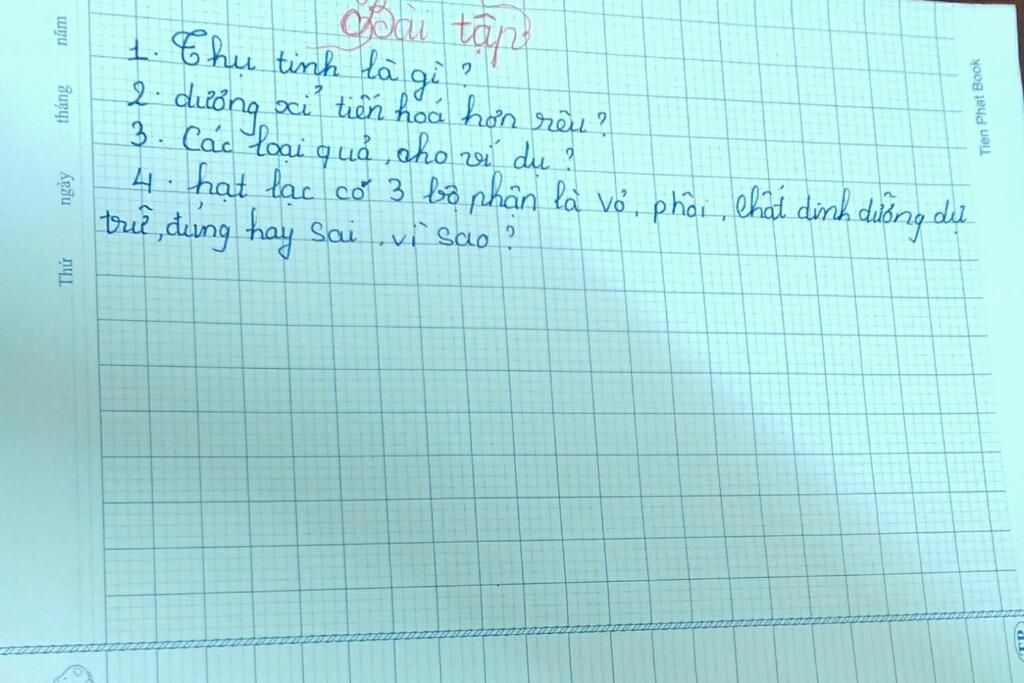 Bài tập
năm
1. Thụ tinh là gì?
2. dương xỉ tiến hoá hơn rêu?
tháng
Tien Phat Book
3. Các loại quả, cho ví dụ?
ngày
4. hạt lạc có 3 bộ phận là vỏ, phôi, chất dinh dưỡng dự
trữ, đúng hay sai, vì sao?
Thứ